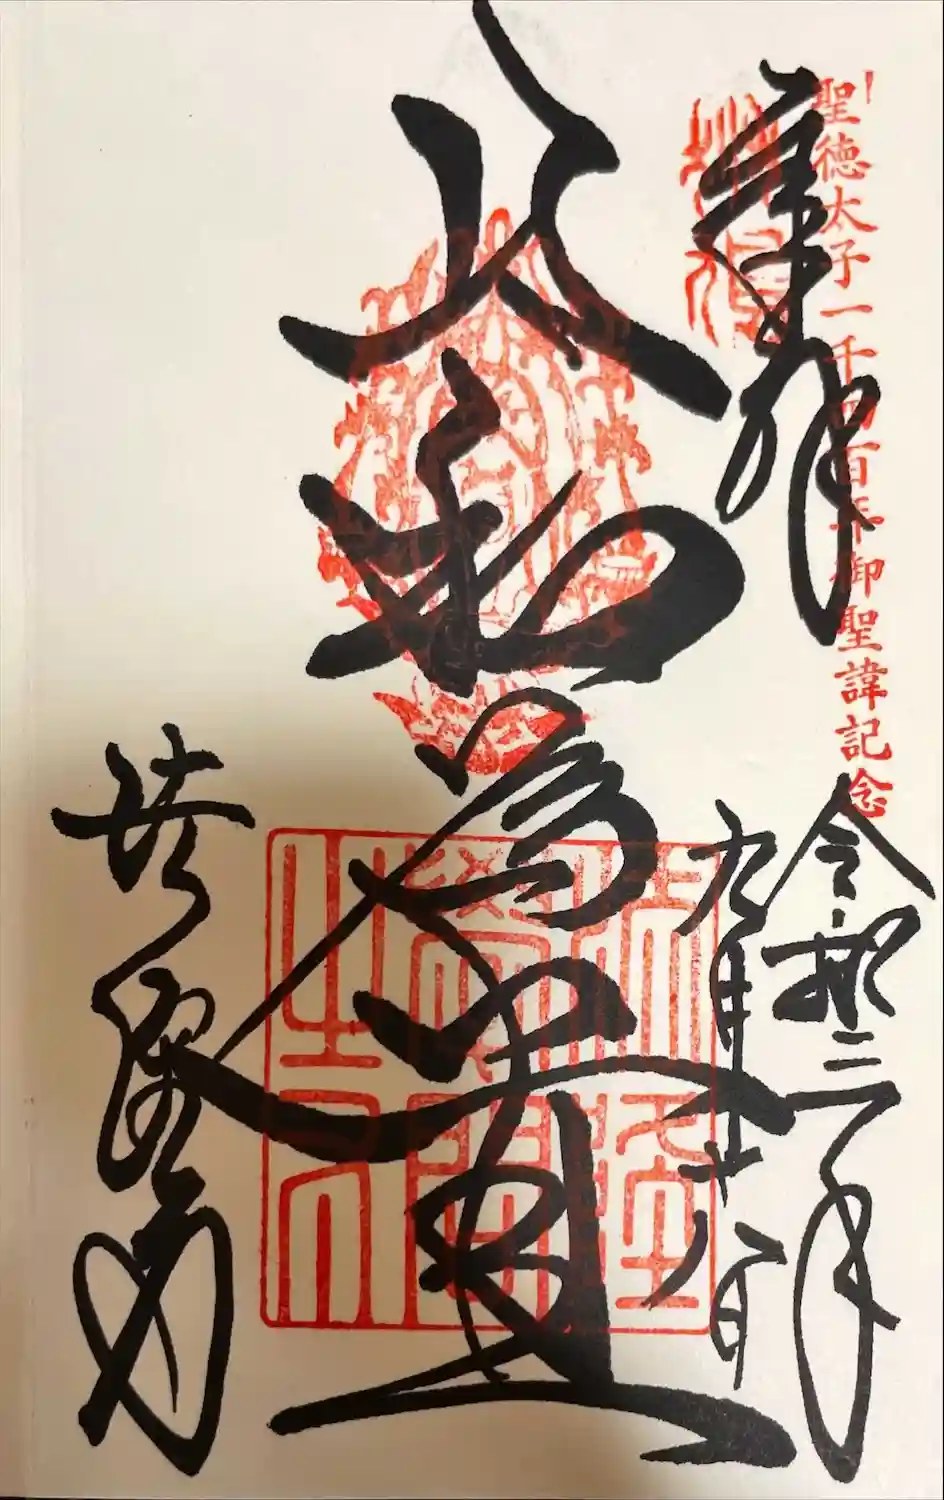 聖徳太子一千四百年御聖諱記念
奉拝
令和三年
九月十八日
以和為貴
法隆寺